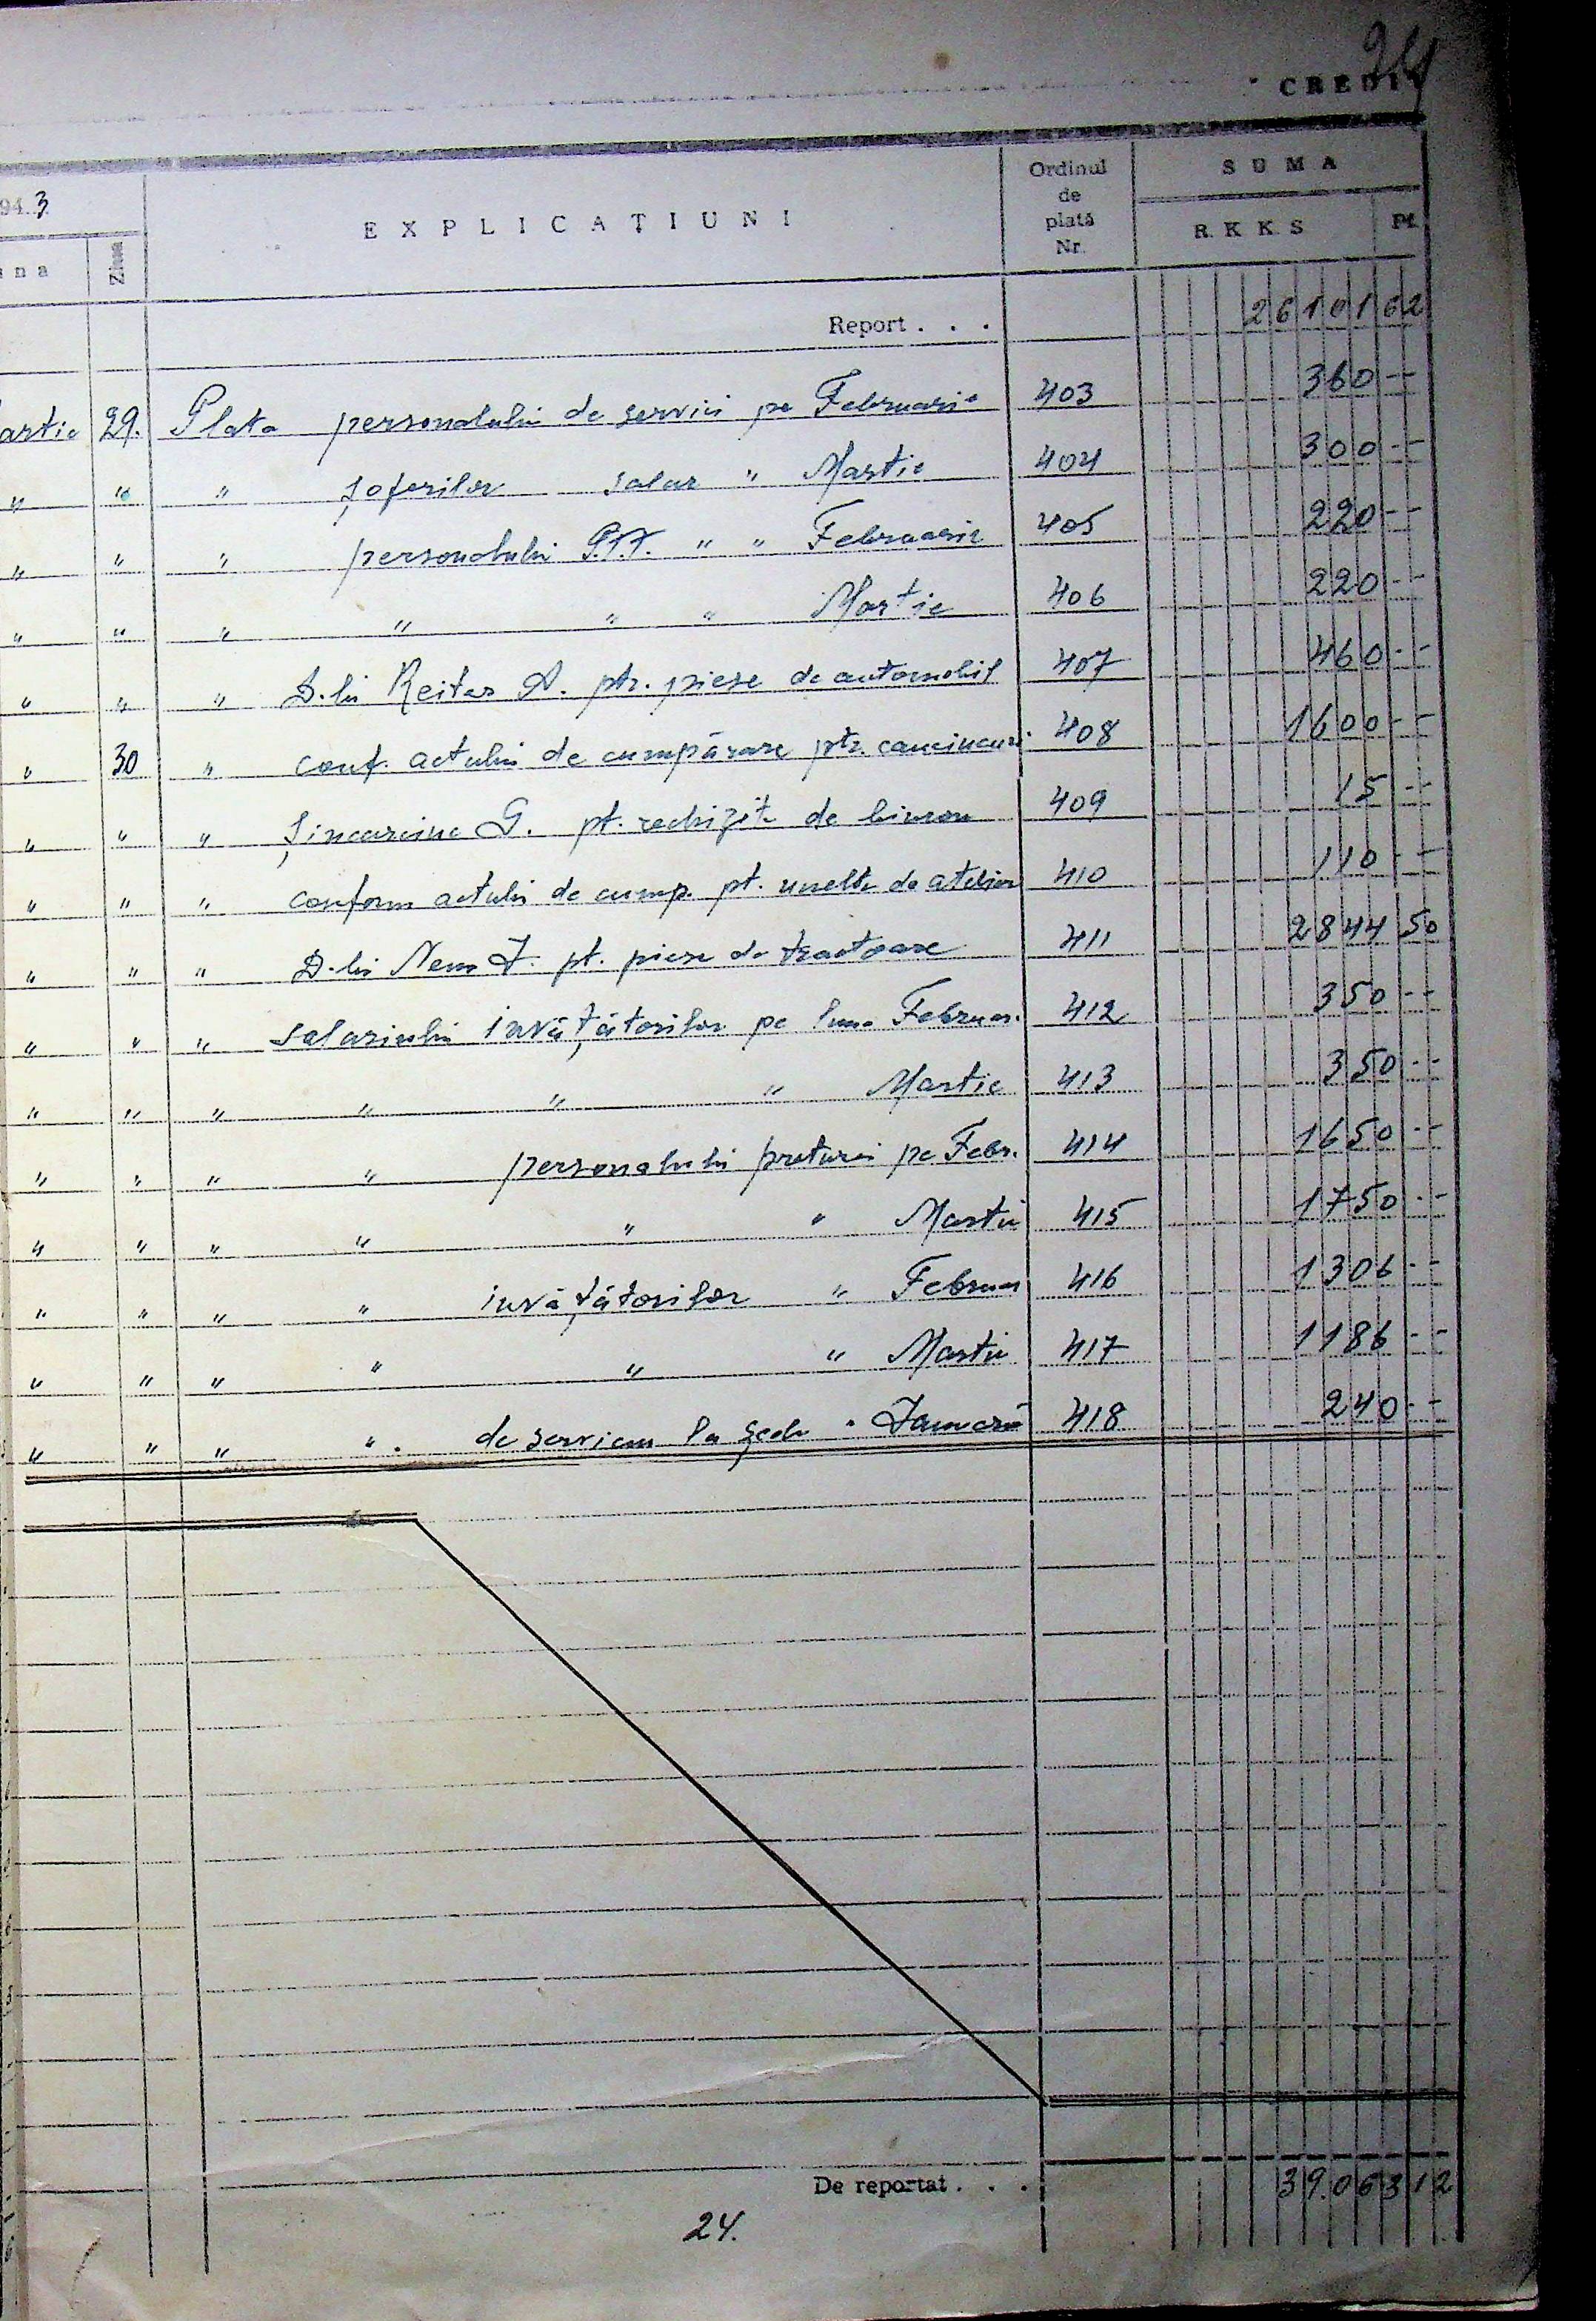 24
CREDIT
94.3.
na
Ziua
EXPLICAȚIUNI
Ordinul de plată Nr.
SUMA
R. K. K. S.
Pf.
Report . . . 26101 62
artie 29. Plata personalului de servici pe Februarie 403 360 --
" " " șoferilor salar " Martie 404 300 --
" " " personalului P.T.T. " " Februarie 405 220 --
" " " " " " Martie 406 220 --
" " " D-lui Reiter A. ptr. piese de automobil 407 460 --
" 30 " conf. actului de cumpărare ptr. 408 1600 --
" " " G. pt. rechizite de birou 409 15 --
" " " conform actului de cump. pt. unelte de atelier 410 110 --
" " " D-lui pt. piese de tractoare 411 2844 50
" " " salariului învățătorilor pe luna Februar. 412 350 --
" " " " " " Martie 413 350 --
" " " " personalului preturei pe Febr. 414 1650 --
" " " " " " Martie 415 1750 --
" " " " învățătorilor " Februar 416 1306 --
" " " " " " Martie 417 1186 --
" " " " . de serviciu la " Ianuarie 418 240 --
De reportat . . . 39.063 12
24.